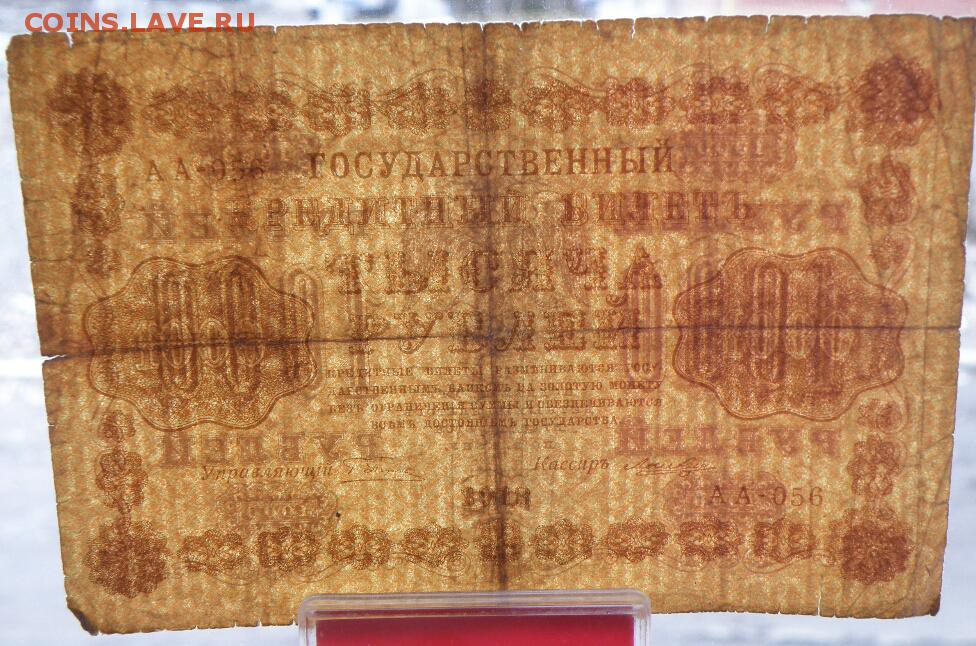 COINS.LAVE.RU
АА-056 ГОСУДАРСТВЕННЫЙ
КРЕДИТНЫЙ БИЛЕТЪ
ТЫСЯЧА
РУБЛЕЙ
1000
1000
КРЕДИТНЫЕ БИЛЕТЫ РАЗМѢНИВАЮТСЯ ГОСУ-
ДАРСТВЕННЫМЪ БАНКОМЪ НА ЗОЛОТУЮ МОНЕТУ
БЕЗЪ ОГРАНИЧЕНІЯ СУММЫ И ОБЕЗПЕЧИВАЮТСЯ
ВСѢМЪ ДОСТОЯНІЕМЪ ГОСУДАРСТВА.
Управляющій
Кассиръ
1918
АА-056